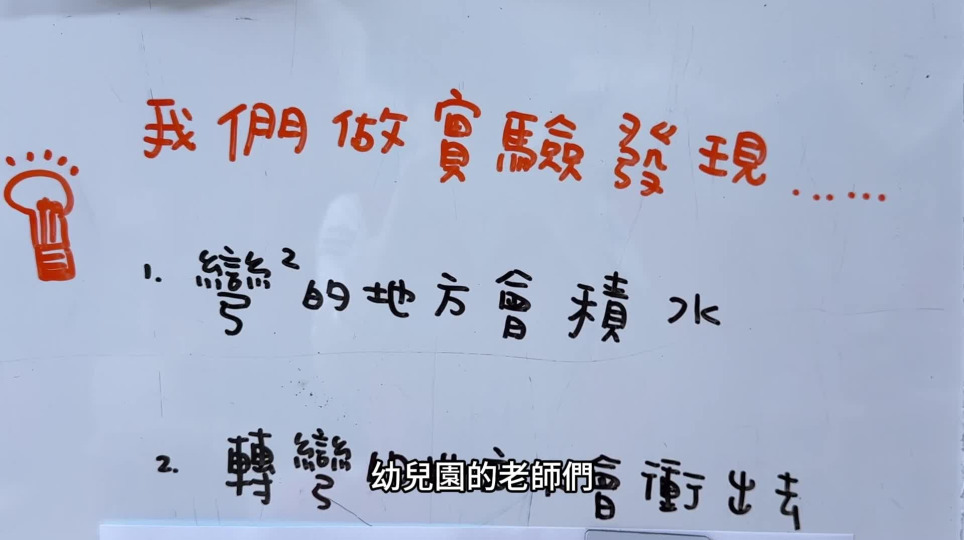 我們做實驗發現......
1. 彎²的地方會積水
2. 轉彎 會衝出去
幼兒園的老師們